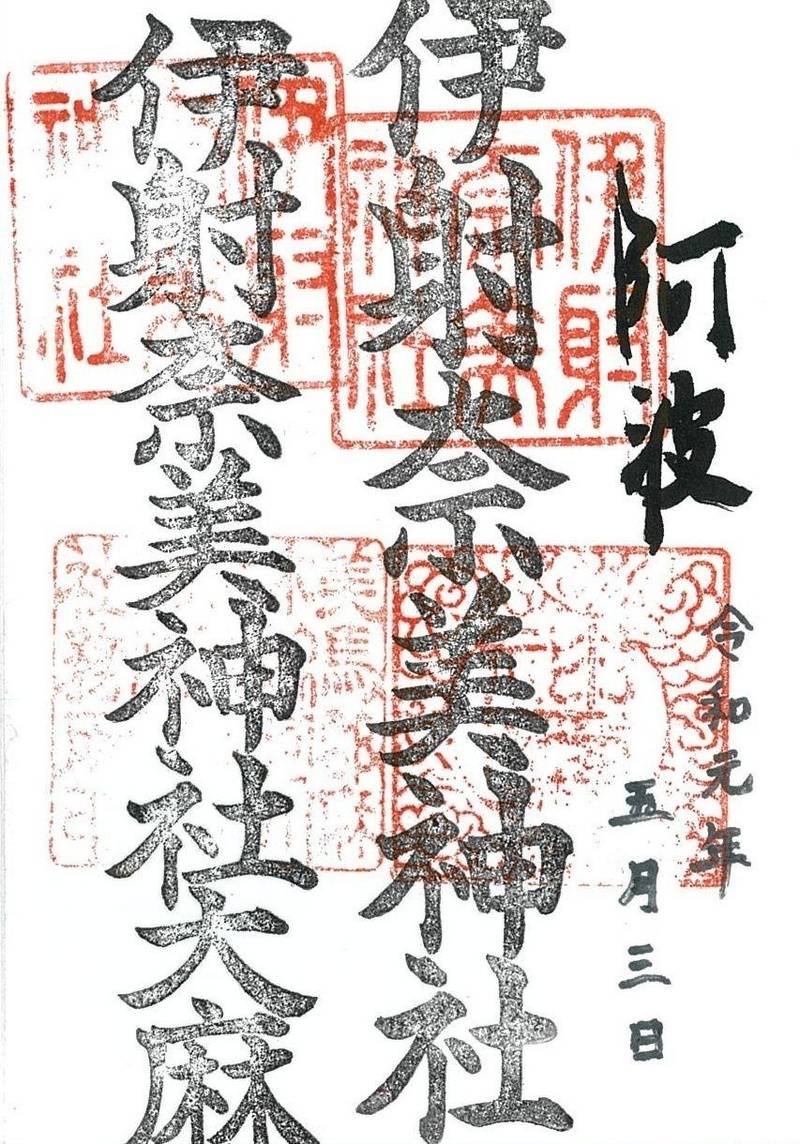 阿波
令和元年
五月三日
伊射奈美神社
伊射奈美神社
伊射奈美神社大麻